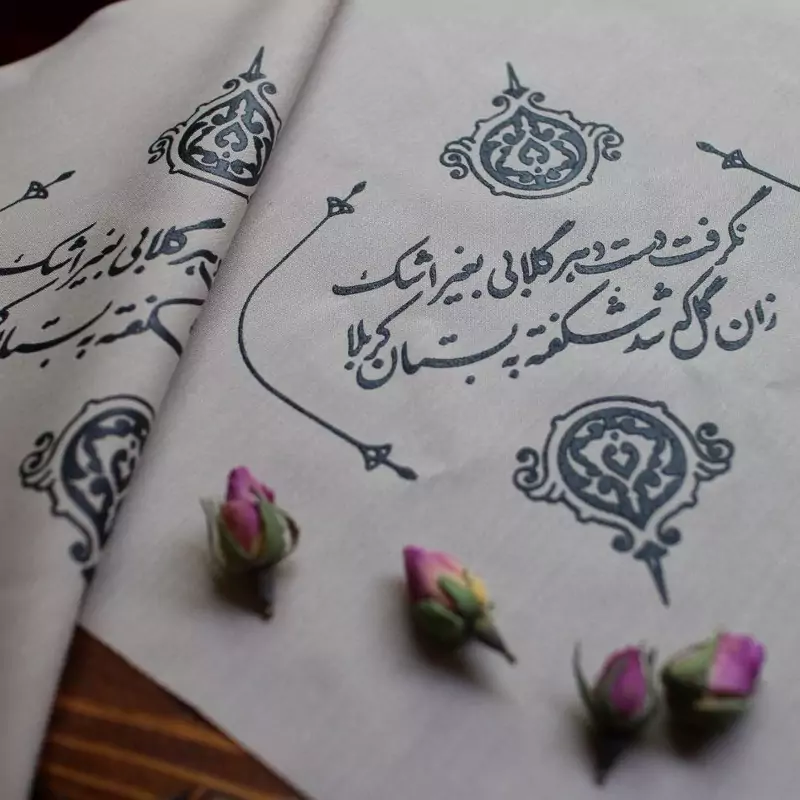 نگرفت دست دهر گلابی بغیر اشک
زان گل که شد شکفته به بستان کربلا
هر گلابی بغیر اشک
شکفته به بستان